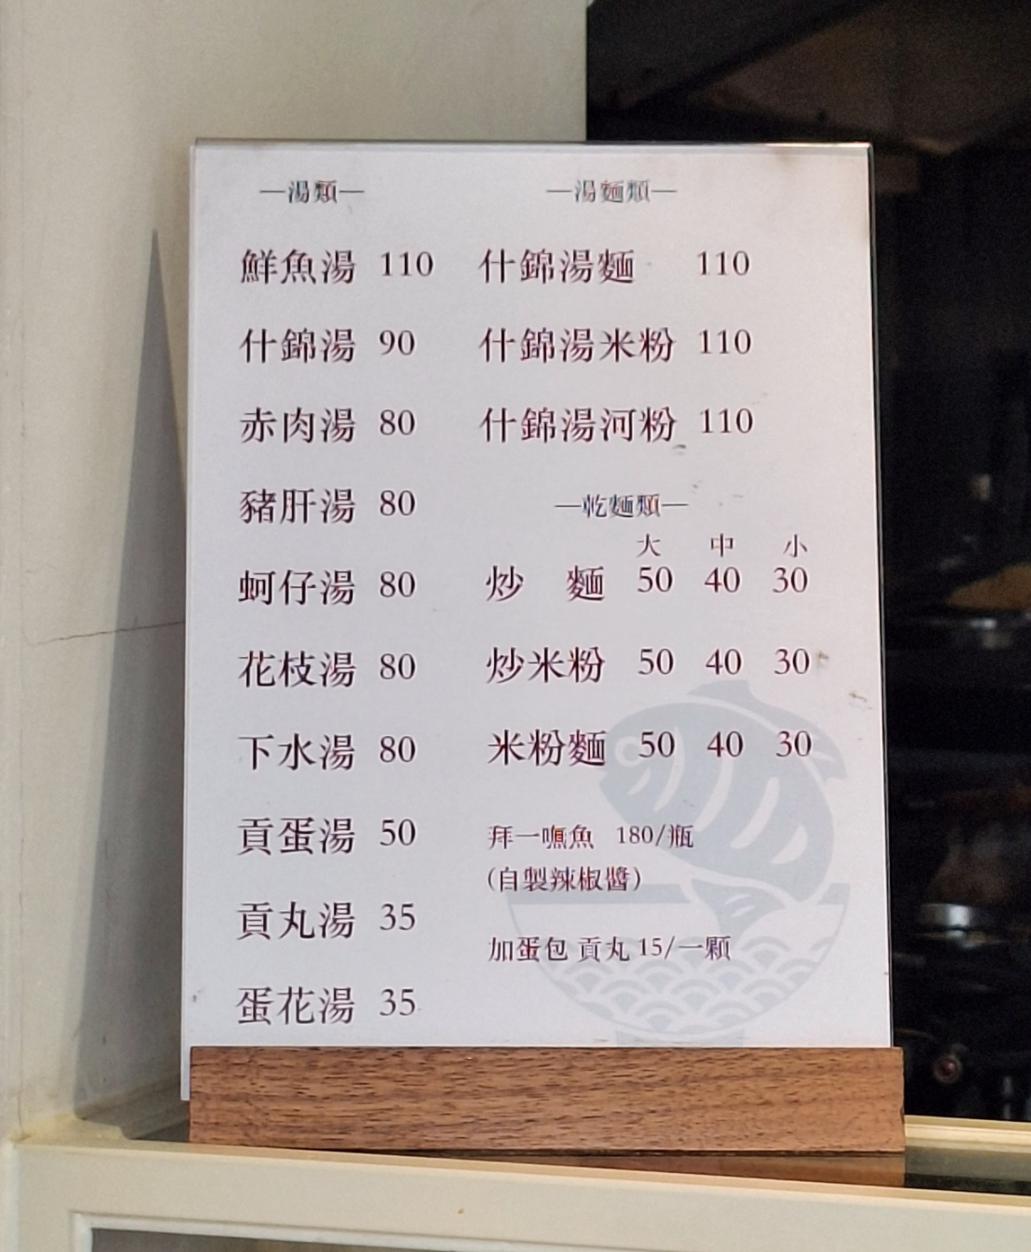 —湯類—
鮮魚湯 110
什錦湯 90
赤肉湯 80
豬肝湯 80
蚵仔湯 80
花枝湯 80
下水湯 80
貢蛋湯 50
貢丸湯 35
蛋花湯 35
—湯麵類—
什錦湯麵 110
什錦湯米粉 110
什錦湯河粉 110
—乾麵類—
大 中 小
炒 麵 50 40 30
炒米粉 50 40 30
米粉麵 50 40 30
拜一嘸魚 180/瓶
(自製辣椒醬)
加蛋包 貢丸 15/一顆